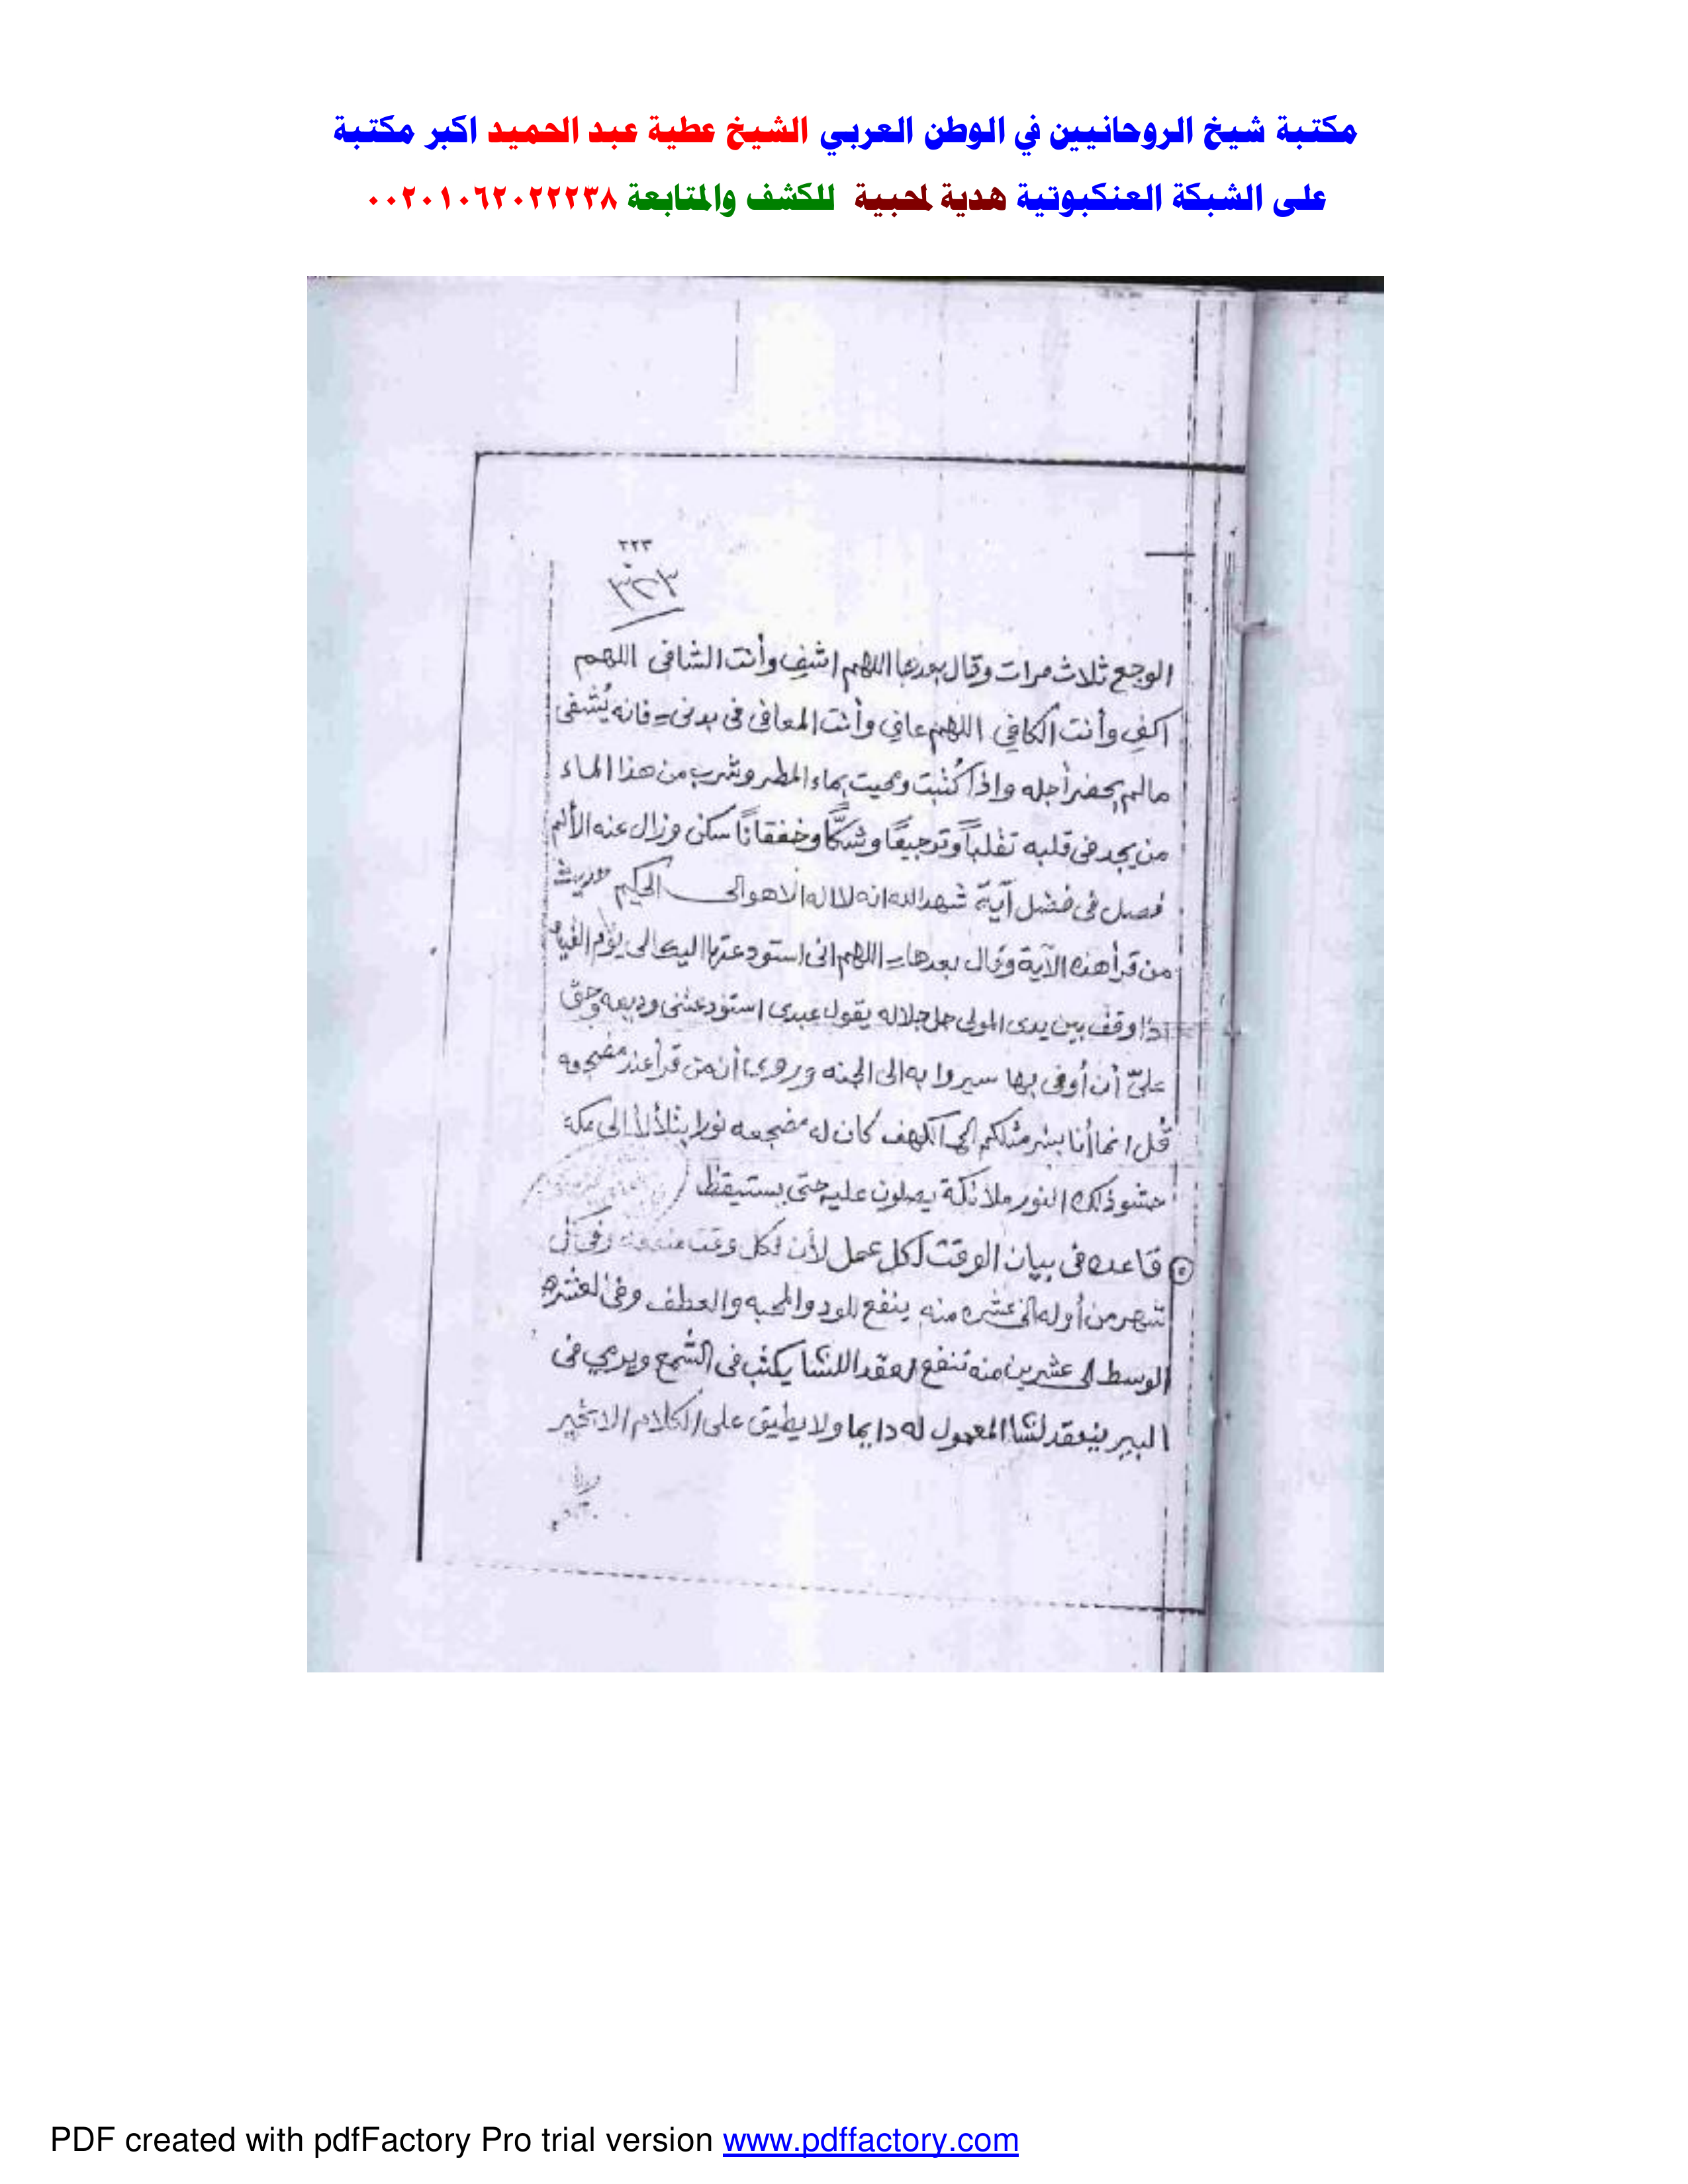 مكتبة شيخ الروحانيين في الوطن العربي الشيخ عطية عبد الحميد اكبر مكتبة
على الشبكة العنكبوتية هدية لمحبية للكشف والمتابعة ٠٠٢٠١٠٦٢٠٢٢٢٣٨
٣٢٣
٣٢٣
الوجع ثلاث مرات وقال بعدها اللهم اشفِ وأنت الشافى اللهم
اكفِ وأنت الكافِي اللهم عافِي وأنت المعافى فى بدنى فانه يُشفى
مالم يحضر أجله واذا كُتبت ومحيت بماء المطر وشرب من هذا الماء
من يجد فى قلبه تقلباً وترجيعًا وشكًّا وخفقانًا سكن وزال عنه الألم
فصل فى فضل آية شهد الله انه لا اله الا هو الى الحكيم حديث
من قرأ هذه الآية وقال بعدها اللهم انى استودعتها اليك الى يوم القيام
اذا وقف بين يدى المولى جل جلاله يقول عبدى استودعتنى وديعه وحق
علىّ أن أوفى بها سيروا به الى الجنه وروى أن من قرأ عند مضجعه
قُل انما أنا بشر مثلكم الى الكهف كان له مضجعه نورا يتلألأ الى مكة
حشو ذلك النور ملائكة يصلون عليه حتى يستيقظ
قاعده فى بيان الوقت لكل عمل لأن لكل وقت وفى كل
شهر من أوله الى عشره منه ينفع للود والمحبه والعطف وفى العشره
الوسط الى عشرين منه تنفع لعقد اللشا يكتب فى الشمع ويرمي فى
البير ينعقد لشا المعمول له دايما ولا يطيق على الكلام الا بخير
PDF created with pdfFactory Pro trial version www.pdffactory.com